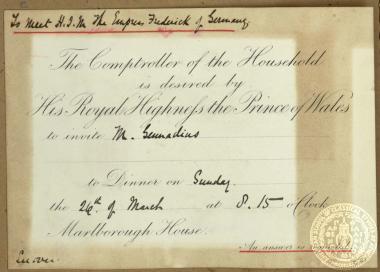 To Meet H.I.M The Empress Frederick of Germany
The Comptroller of the Household
is desired by
His Royal Highness the Prince of Wales
to invite M. Gennadius
to Dinner on Sunday.
the 26th of March at 8.15 o'Clock
Marlborough House.
An answer is requested.